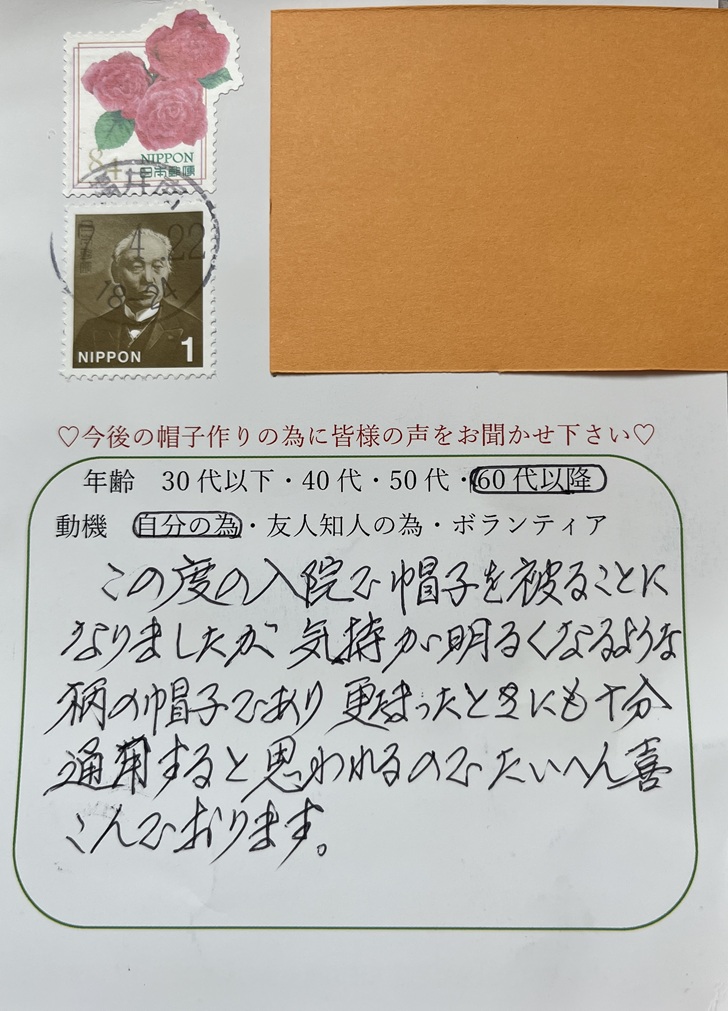 84
NIPPON
日本郵便
4.22
18-24
日本郵便
NIPPON 1
♡今後の帽子作りの為に皆様の声をお聞かせ下さい♡
年齢 30代以下・40代・50代・60代以降
動機 自分の為・友人知人の為・ボランティア
この度の入院で帽子を被ることに
なりましたが 気持が明るくなるような
柄の帽子であり 更たまったときにも十分
通用すると思われるのでたいへん喜
こんでおります。